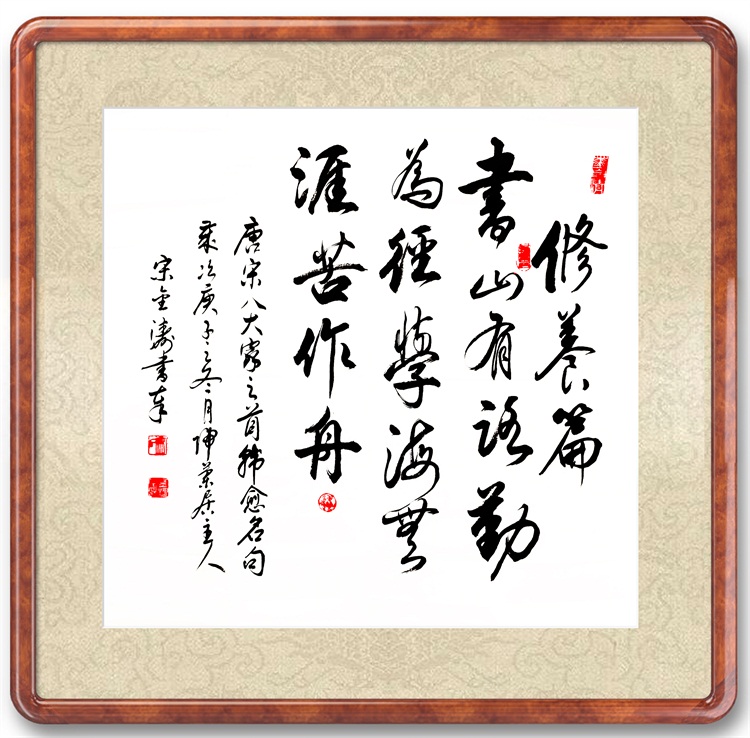 修養篇
書山有路勤
為徑學海無
涯苦作舟
唐宋八大家之首韓愈名句
歲次庚子之冬月坤居主人
宋金濤書奉